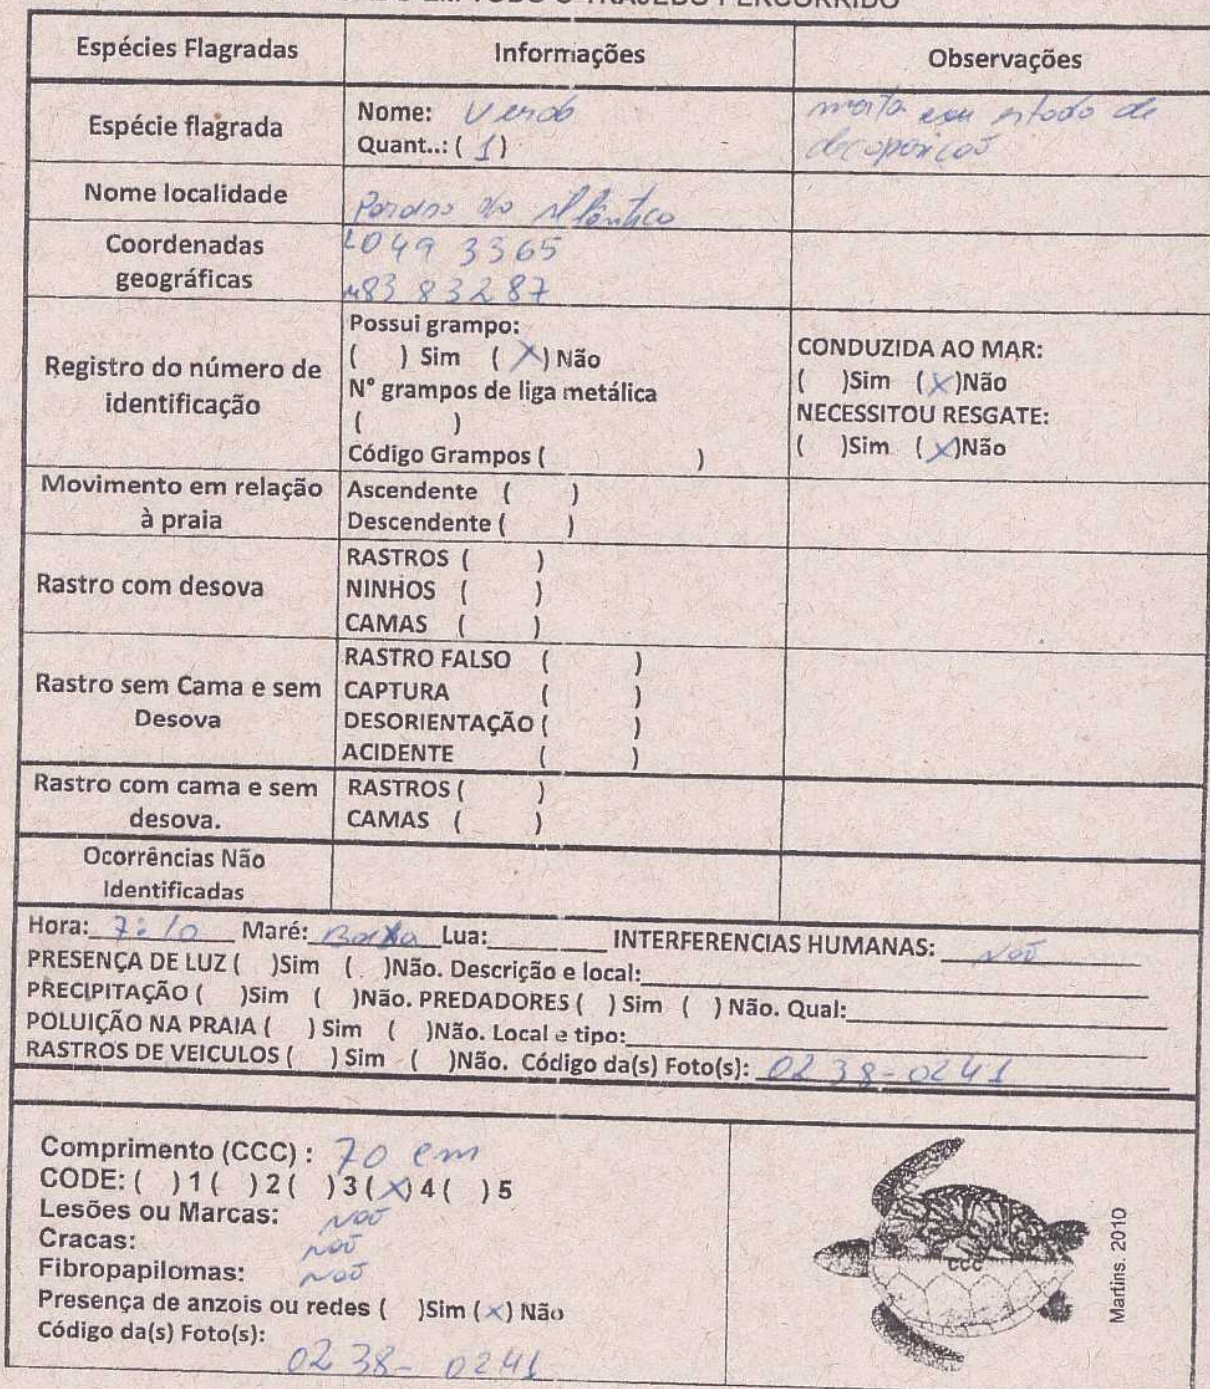 EM TODO O TRAJEDO PERCORRIDO
Espécies Flagradas Informações Observações
Espécie flagrada
Nome: Verde
Quant..: ( 1 )
morta em estado de
decoposicaõ
Nome localidade
Paraiso do Atlântico
Coordenadas
geográficas
L049 3365
8383287
Registro do número de
identificação
Possui grampo:
( ) Sim ( X ) Não
N° grampos de liga metálica
( )
Código Grampos ( )
CONDUZIDA AO MAR:
( )Sim ( X )Não
NECESSITOU RESGATE:
( )Sim ( X )Não
Movimento em relação
à praia
Ascendente ( )
Descendente ( )
Rastro com desova
RASTROS ( )
NINHOS ( )
CAMAS ( )
Rastro sem Cama e sem
Desova
RASTRO FALSO ( )
CAPTURA ( )
DESORIENTAÇÃO ( )
ACIDENTE ( )
Rastro com cama e sem
desova.
RASTROS ( )
CAMAS ( )
Ocorrências Não
Identificadas
Hora: 7:10 Maré: Baixa Lua: INTERFERENCIAS HUMANAS: Naõ
PRESENÇA DE LUZ ( )Sim ( )Não. Descrição e local:
PRECIPITAÇÃO ( )Sim ( )Não. PREDADORES ( ) Sim ( ) Não. Qual:
POLUIÇÃO NA PRAIA ( ) Sim ( )Não. Local e tipo:
RASTROS DE VEICULOS ( ) Sim ( )Não. Código da(s) Foto(s): 0238-0241
Comprimento (CCC) : 70 cm
CODE: ( ) 1 ( ) 2 ( ) 3 ( X ) 4 ( ) 5
Lesões ou Marcas: Naõ
Cracas: Naõ
Fibropapilomas: Naõ
Presença de anzois ou redes ( )Sim ( X ) Não
Código da(s) Foto(s):
0238-0241
CCC
Martins. 2010